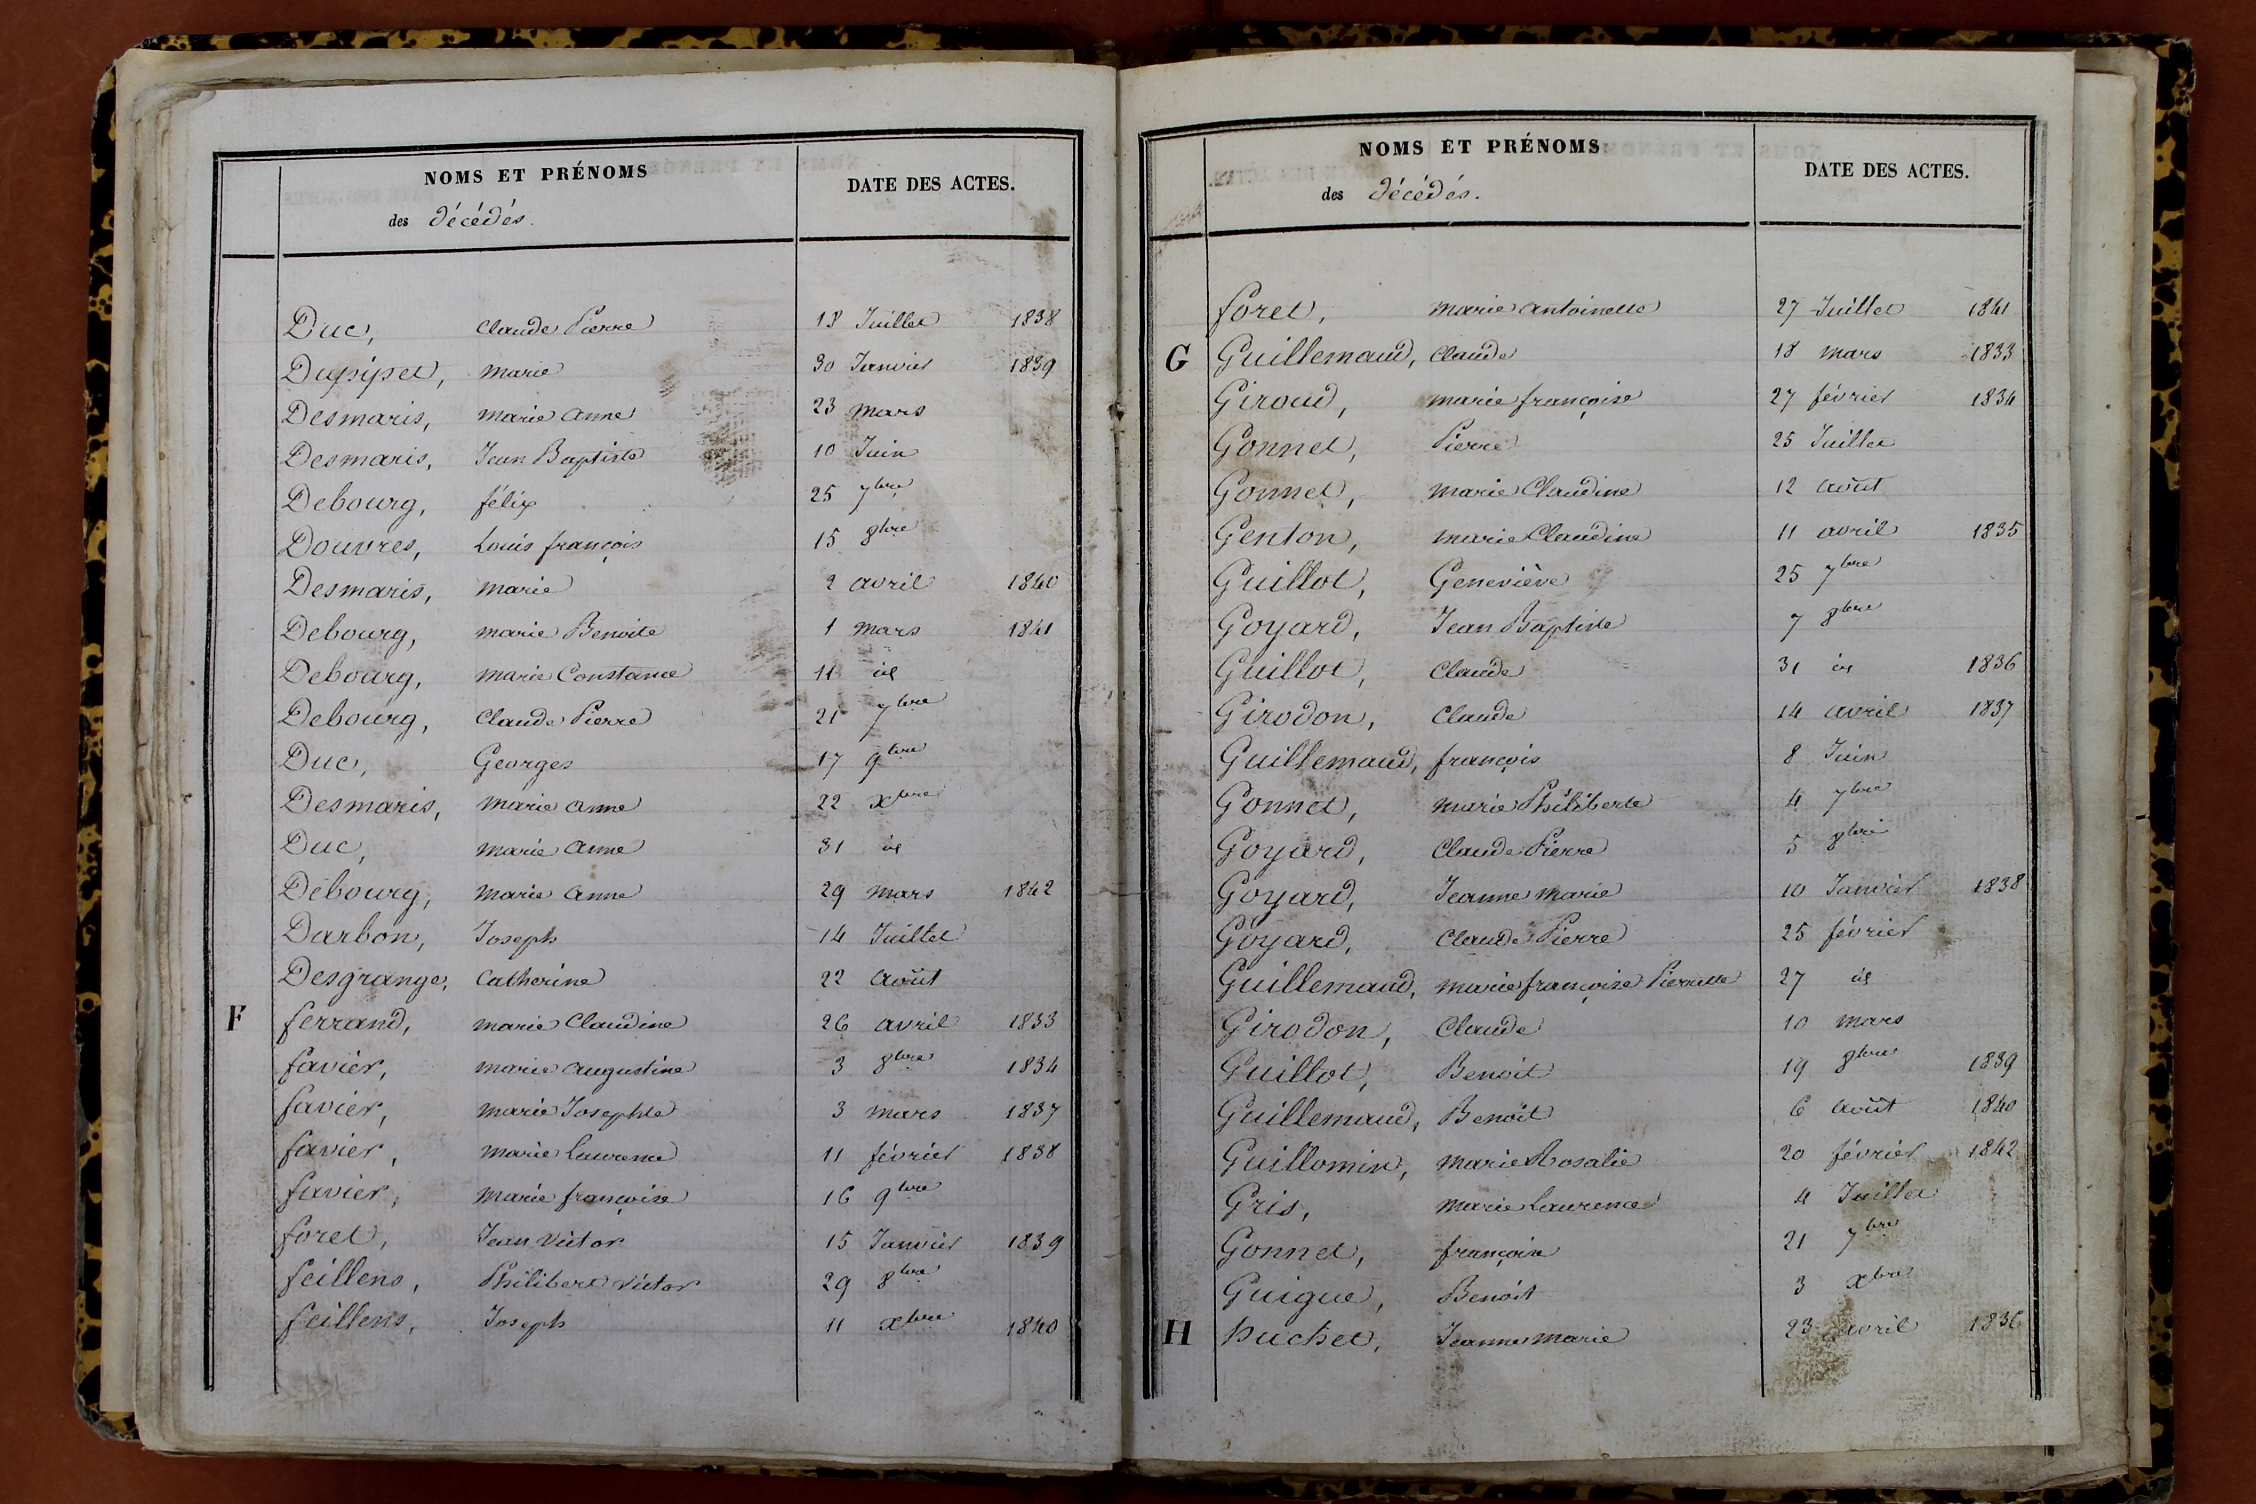 NOMS ET PRÉNOMS
des décédés.
DATE DES ACTES.
Duc, Claude Pierre 18 Juillet 1838
Dupipet, Marie 30 Janvier 1839
Desmaris, Marie Anne 23 Mars
Desmaris, Jean Baptiste 10 Juin
Debourg, félix 25 7bre
Douvres, Louis françois 15 8bre
Desmaris, Marie 2 avril 1840
Debourg, Marie Benoite 1 Mars 1841
Debourg, Marie Constance 11 id
Debourg, Claude Pierre 21 7bre
Duc, Georges 17 9bre
Desmaris, Marie Anne 22 xbre
Duc, Marie Anne 31 id
Debourg, Marie Anne 29 Mars 1842
Darbon, Joseph 14 Juillet
Desgrange, Catherine 22 Août
F ferrand, Marie Claudine 26 avril 1833
favier, Marie Augustine 3 8bre 1834
favier, Marie Josephte 3 Mars 1837
favier, Marie Laurence 11 février 1838
favier, Marie françoise 16 9bre
foret, Jean Victor 15 Janvier 1839
feillens, Philibert Victor 29 8bre
feillens, Joseph 11 xbre 1840
NOMS ET PRÉNOMS
des décédés.
DATE DES ACTES.
foret, Marie Antoinette 27 Juillet 1841
G Guillemaud, Claude 18 Mars 1833
Giroud, Marie françoise 27 février 1834
Gonnet, Pierre 25 Juillet
Gonnet, Marie Claudine 12 Août
Genton, Marie Claudine 11 avril 1835
Guillot, Geneviève 25 7bre
Goyard, Jean Baptiste 7 8bre
Guillot, Claude 31 id 1836
Girodon, Claude 14 avril 1837
Guillemaud, françois 8 Juin
Gonnet, Marie Philiberte 4 7bre
Goyard, Claude Pierre 5 8bre
Goyard, Jeanne Marie 10 Janvier 1838
Goyard, Claude Pierre 25 février
Guillemaud, Marie françoise Pierrette 27 id
Girodon, Claude 10 Mars
Guillot, Benoit 19 8bre 1839
Guillemaud, Benoit 6 Août 1840
Guillomin, Marie Rosalie 20 février 1842
Gris, Marie Laurence 4 Juillet
Gonnet, françoise 21 7bre
Guigue, Benoit 3 xbre
H huchet, Jeanne Marie 23 avril 1836